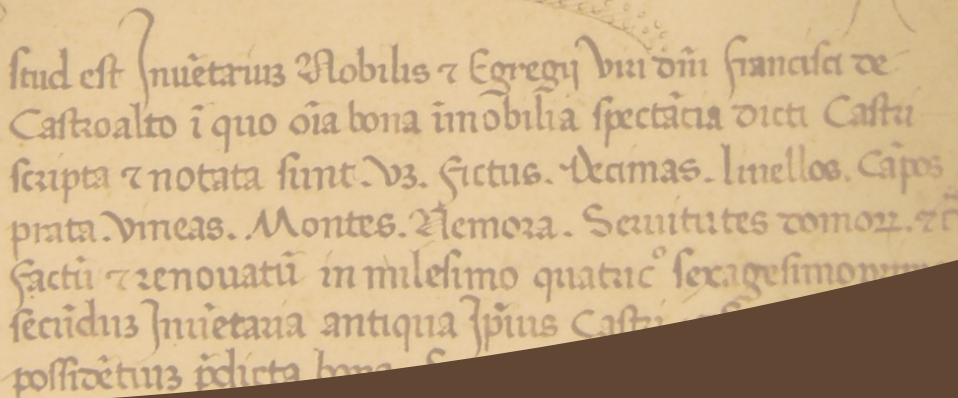 stud est Inuētariuз Nobilis ⁊ Egregij Viri dn̄i francisci de
Castroalto ī quo oīa bona īmobilia spectācia dicti Castri
scripta ⁊ notata sunt. Vꝫ. fictus. Decimas. liuellos. Cāpos
prata. Vineas. Montes. Nemora. Seruitutes domoꝝ. ⁊c̄
factū ⁊ renouatū in milesimo quatricº sexagesimo
secūduз Inuētaria antiqua Ip̄ius Castri
possidētiuз p̄dicta bona